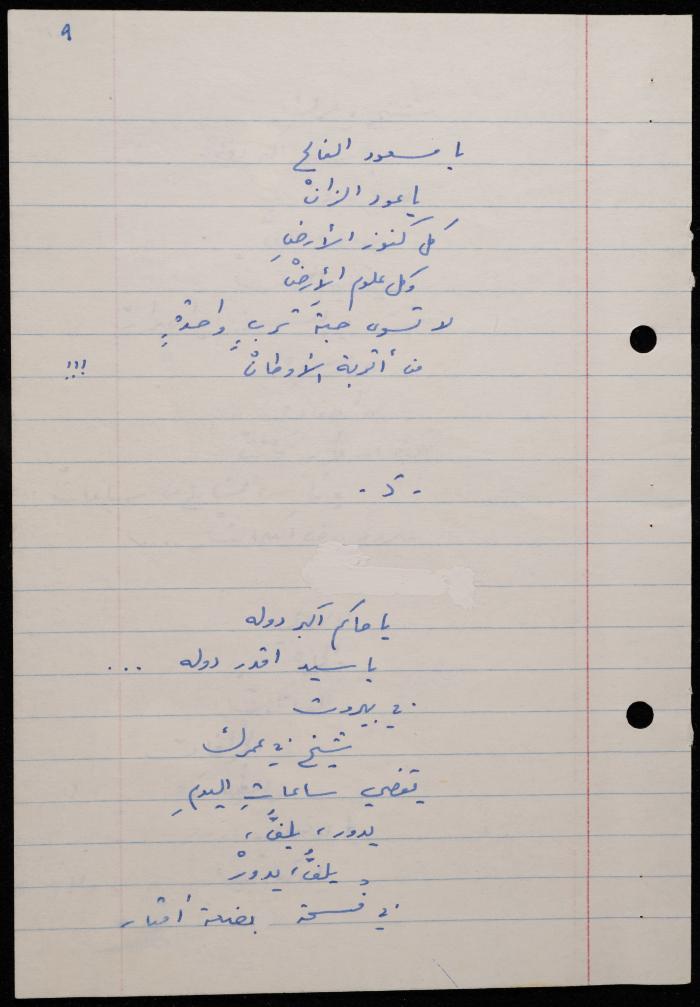 ٩
يا مسعود الفالح
يا عود الزانْ
كل كنوز الأرضِ
وكل علوم الأرضْ
لا تسوى حبةَ تربٍ واحدةْ
من أتربة الأوطانْ !!!
- د -
يا حاكم أكبر دوله
يا سيد اقدر دوله ...
في بيروت
شيخ في عمرك
يقضي ساعاتِ اليومِ
يدور، يلفُّ،
يلفُّ، يدورْ
في فسحة بضعة أمتار